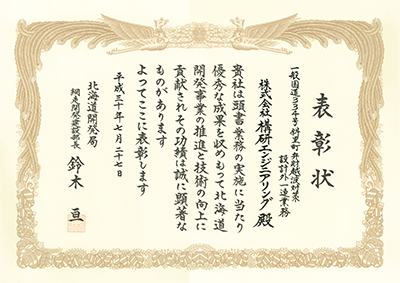 表彰状
一般国道334号斜里町弁財越波対策
設計外一連業務
株式会社構研エンジニアリング殿
貴社は頭書業務の実施に当たり
優秀な成果を収めもって北海道
開発事業の推進と技術の向上に
貢献されその功績は誠に顕著な
ものがあります
よってここに表彰します
平成三十年七月二十七日
北海道開発局
網走開発建設部長 鈴木 亘